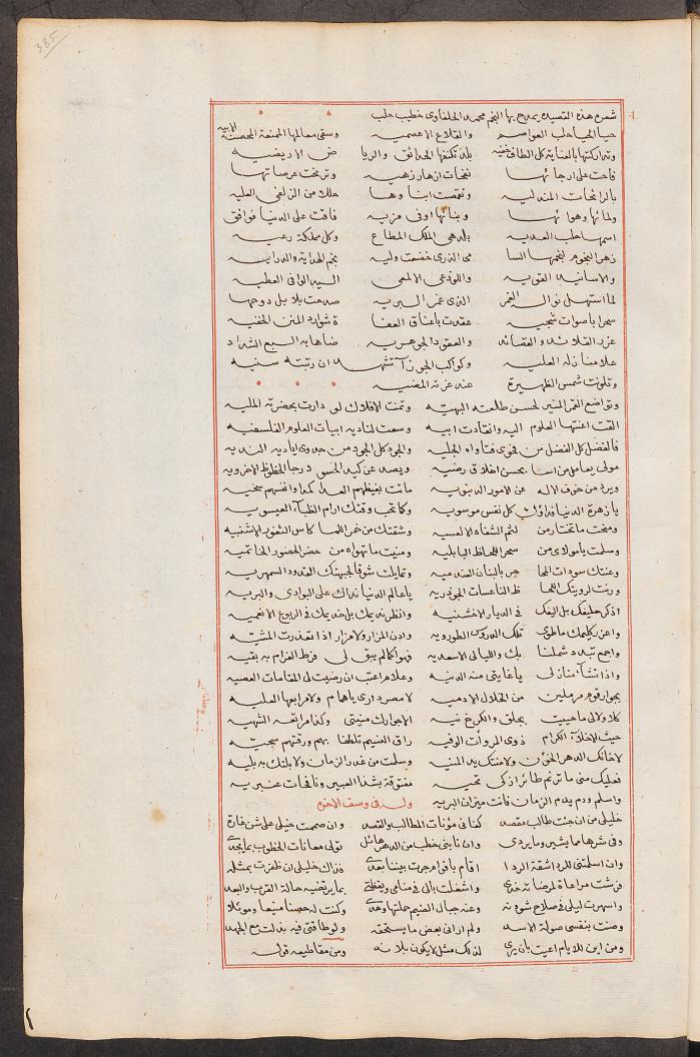 385
شعره هذه القصيدة يمدح بها النجم محمد الحلفاوى خطيب حلب
حيا الحيا حلب العواصم والقلاع الاعصميه وسقى معالمها الممنعة المحصنة الابيه
وتداركتها بالعناية كل الطاف خفيه بلد تكنفها الحدائق والريا ض الاريضيه
فاحت على ارجائها نفحات ازهار زهيه وترنحت عرصاتها
بالرائحات المندليه وتقمصت ابناؤها حللا من الزلفى العليه
ولمائها وهوائها وبنائها اوفى مزيه فاقت على الدنيا فوافق
اسمها حلب العديه بلد هى الملك المطاع وكل مملكة رعيه
زهر النجوم لنجمها السا مى الذرى خضعت وليه نجم الهداية والدرايه
والاسانيد القويه واللوذعى الالمعى السيد الوافى العطيه
لما استهل نوال الغمر الذى غمر البريه صدحت بلابل دوحها
سحرا باصوات شجيه عقدت باعناق العفا ة شوارد المنن الخفيه
غرر القلائد والقصائد والعقود الجوهريه ضاها به السبع الشداد
علامنازله العليه وكواكب الجوزآ تشهد ان رتبته سنيه
وتلونت شمس الظهيرة عند عزته المضيه
وتواضع القمر المنير لحسن طلعته البهيه وتمنت الافلاك لو دارت بحضرته المليه
القت اعنتها العلوم اليه وانقادت ابيه وسعت لناديه ابيات العلوم الفلسفيه
فالفضل كل الفضل من فحوى فتاواه الجليه والجود كل الجود من جدوى اياديه النديه
مولى يعامل من اسا بحسن اخلاق رضيه ويصد عن كيد الحسود رجا الحظوظ الاخرويه
ويرد من خوف الاله عن الامور الدنيويه ماتت بغيظهم العدا كمدا وانفسهم سخيه
يا زهرة الدنيا فداؤك كل نفس موسويه وكاتب وقتك ارام الظباء العيسويه
ومنحت ماتختار من لثم الشفاه الالعسيه وشقتك من خمر اللما كاس الثغور الاشنبيه
وسلمت يا مولاى من سحر اللحاظ البابليه ومنيت ما تهواه من حضر الخصور الخاتميه
وعنتك سودات اللحا جر بالبنان العندميه وتمايلت شوقا لجبهتك القدود السمهريه
ورنت لرويتك اللحا ظ الناعسات الجوذريه يا عالم الدنيا نداك على البوادى والبريه
اذكى حليفك بل اليفك فى الديار الاخشنيه وانظر نديمك بل خديمك فى الربوع الانعميه
واعن كليمك ما طوى تلك الدروس الطوريه وادن المزار ولا مزار اذا تعذرت المشيه
واجمع تبدد شملنا بك والليالى الاسعديه فهواكم لم يبق لى فرط الغرام به بقيه
واذا تشآ منازلى ياغايتى منه الدنيه وعلام اعتب ان رضيت لى المقامات العصيه
بجوار قوم مرملين من الخلال الادميه لا مصر دارى يا همام ولا مرابعها العليه
كلا ولا لى ما حييت بجلق والكرخ نيه الا جوارك منيتى وكذا مرافقه الشهيه
حيث الاخلاء الكرام ذوى المروأت الوفيه راق النسيم تلطفا بهم ورقتهم سجيه
لا خانك الدهر الخؤن ولا عنتك يد المنيه وسلمت من غدر الزمان ولا بلتك به بليه
فعليك منى ما ترنم طائر ازكى تحيه مفتوقة بشذا العبير ونافحات عنبريه
واسلم ودم يدم الزمان فانت ميزان البريه وله فى وصف الاخوة
خليلى من ان جئت طالب مقصد كفانى مؤنات المطالب والقصد وان صممت خيلى على شن غارة
وفى شرها مما يشير وما يردى وان نابنى خطب من الدهر هائل تولى معانات الخطوب بما يجدى
وان اسلمتنى للردا شقة الردا اقام باقوام جرت بيننا بعدى فذاك خليلى ان ظفرت بمثله
فرشت مراعاة لمرضاته خدى واشغلت بالى فى منامى ويقظتى بما يرتضيه حالة القرب والبعد
واسهرت ليلى فى صلاح شؤنه وعنه جبال الضيم حملتها وحدى وكنت له حصنا منيعا وموئلا
وصنت بنفسى صولة الاسد ولم ارانى بعض ما يستحقه ولو طاقتى فيه بذلت مع الجهد
ومن اين للايام اعيت بان يرى لذلك مثل لا يكون بلا ند ومن مقاطيعه قوله